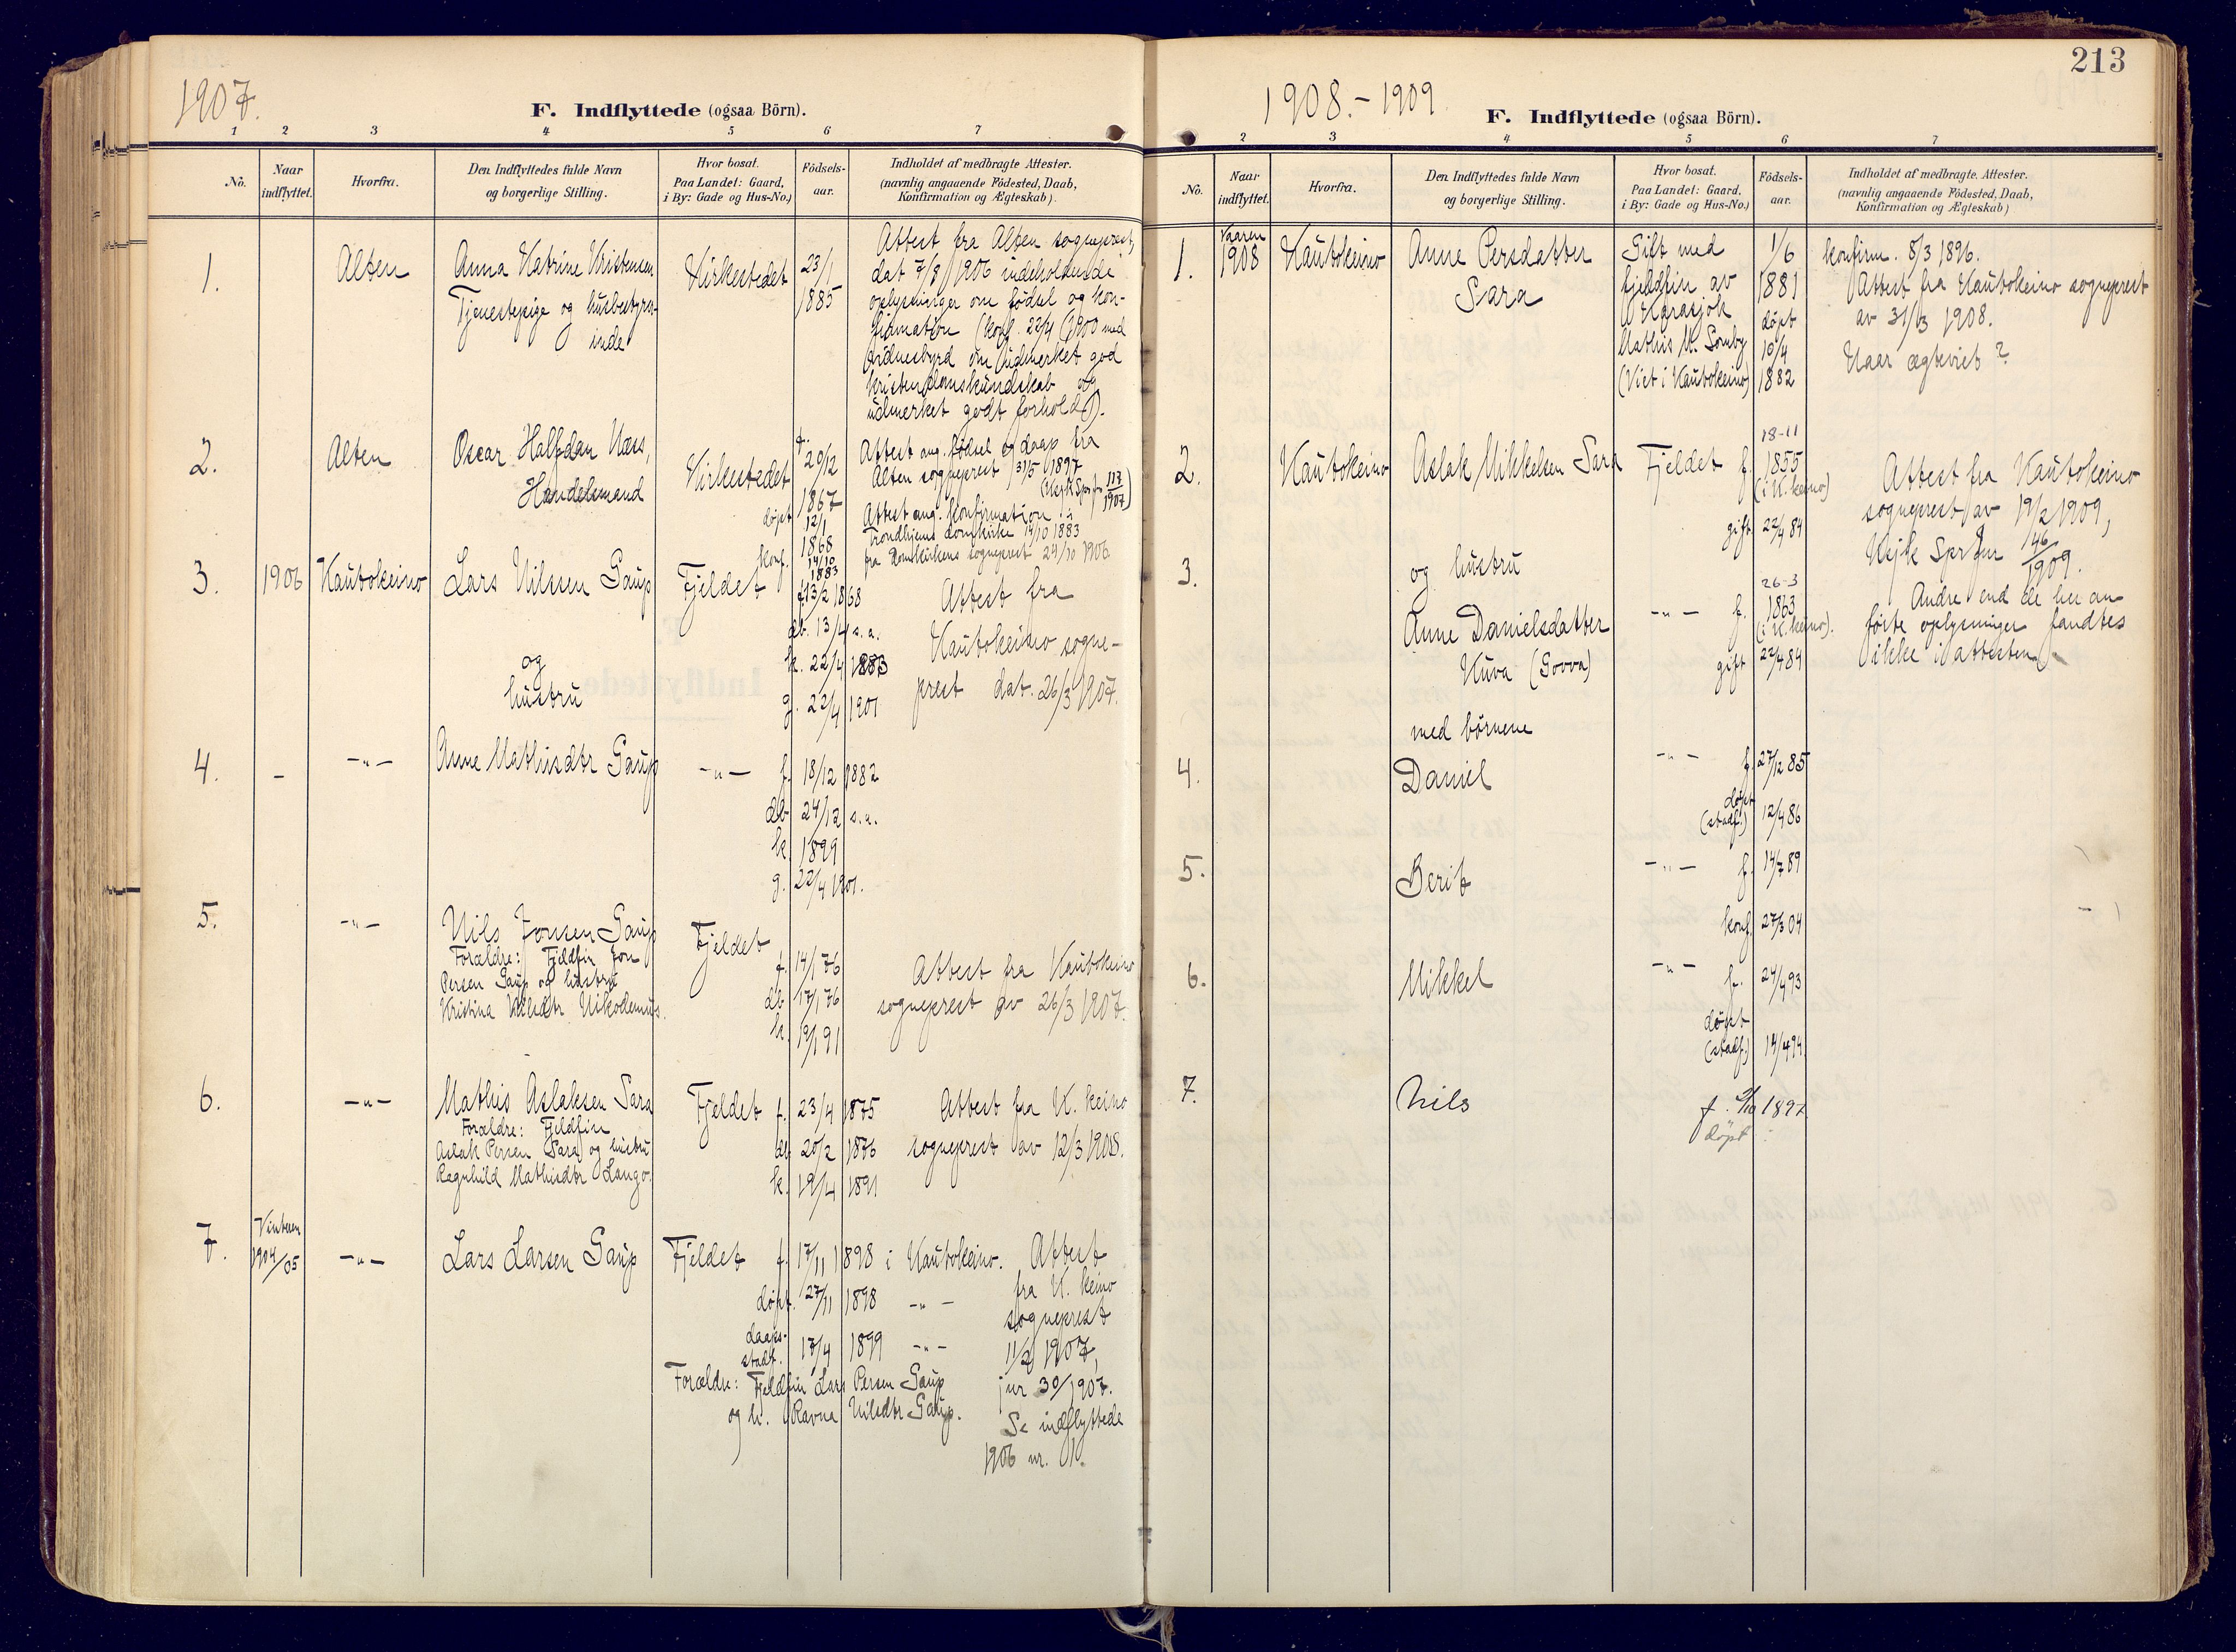 1907.
F. Indflyttede (ogsaa Börn).
1 2 3 4 5 6 7
No.
Naar
indflyttet.
Hvorfra.
Den Indflyttedes fulde Navn
og borgerlige Stilling.
Hvor bosat.
Paa Landet: Gaard,
i By: Gade og Hus-No.)
Födsels-
aar.
Indholdet af medbragte Attester.
(navnlig angaaende Födested, Daab,
Konfirmation og Ægteskab).
1.
Alten
Anna Katrine Kristensen
Tjenestepige og husbestyr-
inde
Kirkestedet
23/1
1885
Attest fra Alten sogneprest,
dat 7/8 1906 indeholdende
oplysninger om födsel og kon-
firmation (konf. 22/4 1900 med
vidnesbyrd om udmerket god
kristendomskundskab og
udmerket godt forhold).
2.
Alten
Oscar Halfdan Næss,
Handelsmand
Kirkestedet
f.
29/12
1867
döpt 12/1
1868
konf. 14/10
1883
Attest ang. födsel og daap fra
Alten sogneprest 31/5 1897
(Ksjk Spr jr 113/1907)
Attest ang. konfirmation i
Trondhjems domkirke 14/10 1883
fra Domkirkens sogneprest 24/10 1906
3.
1906
Kautokeino
Lars Nilsen Gaup
Fjeldet
f. 13/2 1868
db. 13/4 s.a.
k. 22/4 1883
g. 22/4 1901
og
hustru
Attest fra
Kautokeino sogne-
prest dat. 26/3 1907.
4.
-
-"-
Anne Mathisdtr Gaup
-"-
f. 18/12 1882
db 24/12 s.a.
k. 1899
g. 22/4 1901.
5.
-"-
Nils Jonsen Gaup
Forældre: Fjeldfin Jon
Persen Gaup og hustru
Kristina Nilsdtr Nikodemus.
Fjeldet
f. 14/1 76
db. 17/1 76
k. 19/1 91
Attest fra Kautokeino
sogneprest av 26/3 1907.
6.
-"-
Mathis Aslaksen Sara
Forældre: Fjeldfin
Aslak Persen Sara og hustru
Ragnhild Mathisdtr Lango.
Fjeldet
f. 23/4 1875
db 20/2 1876
k. 19/4 1891
Attest fra K. keino
sogneprest av 12/3 1908.
7.
Vinteren
1904/05
-"-
Lars Larsen Gaup
Fjeldet
f. 17/11 1898 i Kautokeino.
döpt. 27/11 1898 -"-
daaps-
stadf. 17/4 1899 -"-
Attest
fra K. keino
sogneprest
11/2 1907,
jnr 30/1907.
Forældre: Fjeldfin Lars Persen Gaup
og h. Ravna Nilsdtr Gaup.
Se indflyttede
1906 nr. 1.
213
1908. - 1909.
F. Indflyttede (ogsaa Börn).
2 3 4 5 6 7
No.
Naar
indflyttet.
Hvorfra.
Den Indflyttedes fulde Navn
og borgerlige Stilling.
Hvor bosat.
Paa Landet: Gaard,
i By: Gade og Hus-No.)
Födsels-
aar.
Indholdet af medbragte. Attester.
(navnlig angaaende Födested, Daab,
Konfirmation og Ægteskab)
1.
Vaaren
1908
Kautokeino
Anne Persdatter
Sara
Gift med
fjeldfin av
Karasjok
Mathis M. Somby
(Viet i Kautokeino)
1/6
1881
döpt
10/4
1882
Konfirm. 8/3 1896.
Attest fra Kautokeino sogneprest
av 31/3 1908.
Naar ægteviet?
2.
Kautokeino
Aslak Mikkelsen Sara
Fjeldet
18-11
f. 1855
(i K.keino)
gift 22/4 84
Attest fra Kautokeino
sogneprest av 19/2 1909,
Ksjk Spr Jnr 146/1909.
Andre end de her an-
förte oplysninger fandtes
ikke i attesten.
3.
og hustru
Anne Danielsdatter
Kuva (Govva)
-"-
26-3
f. 1863
(i K.keino).
gift 22/4 84
med börnene
4.
Daniel
-"-
f. 27/12 85
döpt
(stadf.) 12/4 86
5.
Berit
-"-
f. 14/7 89
konf. 27/3 04
6.
Mikkel
-"-
f. 24/4 93
döpt
(stadf.) 14/4 94
7.
Nils
f. 2/10 1897
döpt :